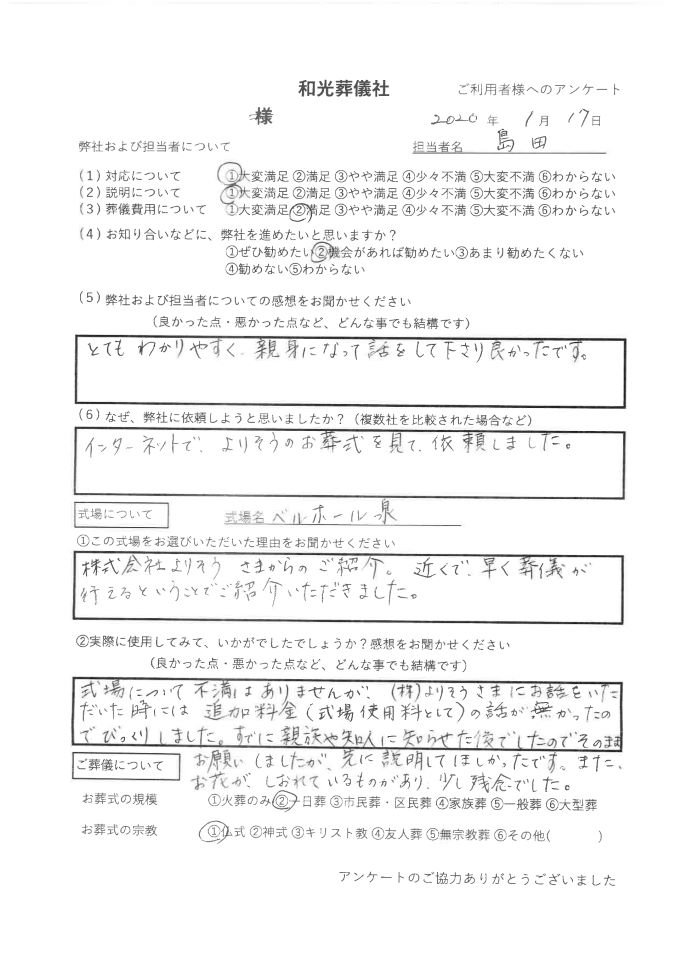 和光葬儀社
ご利用者様へのアンケート
様
2020 年 1 月 17 日
弊社および担当者について
担当者名 島田
(1) 対応について ①大変満足 ②満足 ③やや満足 ④少々不満 ⑤大変不満 ⑥わからない
(2) 説明について ①大変満足 ②満足 ③やや満足 ④少々不満 ⑤大変不満 ⑥わからない
(3) 葬儀費用について ①大変満足 ②満足 ③やや満足 ④少々不満 ⑤大変不満 ⑥わからない
(4) お知り合いなどに、弊社を進めたいと思いますか？
①ぜひ勧めたい ②機会があれば勧めたい ③あまり勧めたくない
④勧めない ⑤わからない
(5) 弊社および担当者についての感想をお聞かせください
（良かった点・悪かった点など、どんな事でも結構です）
とても わかりやすく、親身になって話をして下さり良かったです。
(6) なぜ、弊社に依頼しようと思いましたか？（複数社を比較された場合など）
インターネットで、よりそうのお葬式を見て、依頼しました。
式場について
式場名 ベルホール泉
①この式場をお選びいただいた理由をお聞かせください
株式会社よりそう さまからのご紹介。 近くで、早く葬儀が
行えるということでご紹介いただきました。
②実際に使用してみて、いかがでしたでしょうか？感想をお聞かせください
（良かった点・悪かった点など、どんな事でも結構です）
式場について 不満はありませんが、(株)よりそうさまにお話をいた
だいた時には 追加料金(式場使用料として)の話が無かったの
でびっくりしました。すでに親族や知人に知らせた後でしたのでそのまま
お願いしましたが、先に説明してほしかったです。また、
お花が、しおれているものがあり、少し残念でした。
ご葬儀について
お葬式の規模 ①火葬のみ ②一日葬 ③市民葬・区民葬 ④家族葬 ⑤一般葬 ⑥大型葬
お葬式の宗教 ①仏式 ②神式 ③キリスト教 ④友人葬 ⑤無宗教葬 ⑥その他( )
アンケートのご協力ありがとうございました